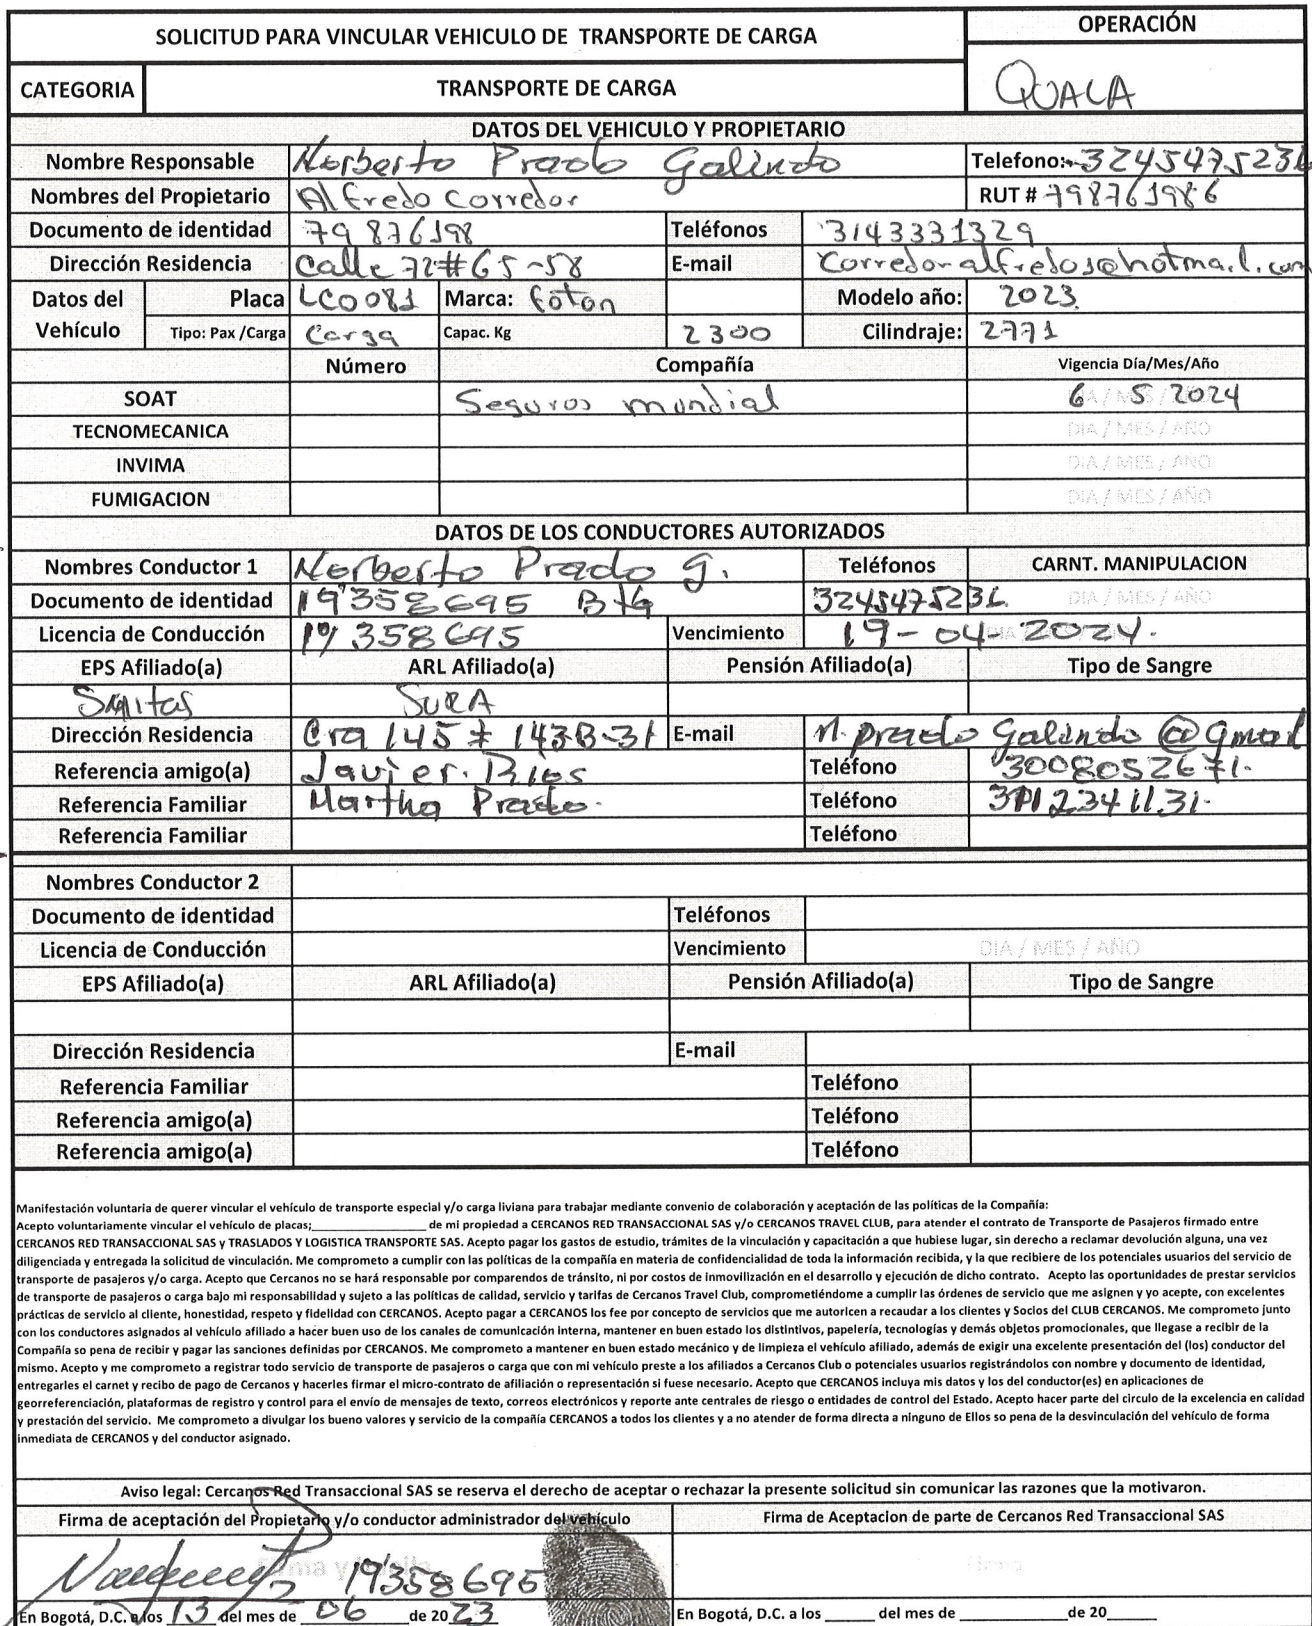 SOLICITUD PARA VINCULAR VEHICULO DE TRANSPORTE DE CARGA
OPERACIÓN
CATEGORIA TRANSPORTE DE CARGA QUALA
DATOS DEL VEHICULO Y PROPIETARIO
Nombre Responsable Norberto Prado Galindo Telefono: 3245475231
Nombres del Propietario Alfredo Corredor RUT # 798761986
Documento de identidad 79 876198 Teléfonos 3143331329
Dirección Residencia Calle 72 # 65-58 E-mail Corredoralfredos@hotmail.com
Datos del Vehículo Placa LCO081 Marca: foton Modelo año: 2023
Tipo: Pax /Carga Carga Capac. Kg 2300 Cilindraje: 2771
Número Compañía Vigencia Día/Mes/Año
SOAT Seguros mundial 6 / 5 / 2024
TECNOMECANICA DIA / MES / AÑO
INVIMA DIA / MES / AÑO
FUMIGACION DIA / MES / AÑO
DATOS DE LOS CONDUCTORES AUTORIZADOS
Nombres Conductor 1 Norberto Prado G. Teléfonos CARNT. MANIPULACION
Documento de identidad 19'358695 Btá 3245475231 DIA / MES / AÑO
Licencia de Conducción 19'358695 Vencimiento 19-04-2024.
EPS Afiliado(a) ARL Afiliado(a) Pensión Afiliado(a) Tipo de Sangre
Sanitas SURA
Dirección Residencia Cra 145 # 143B-31 E-mail n.prado Galindo @ gmail
Referencia amigo(a) Javier. Rios Teléfono 3008052671.
Referencia Familiar Martha Prado. Teléfono
Referencia Familiar Teléfono
Nombres Conductor 2
Documento de identidad Teléfonos
Licencia de Conducción Vencimiento DIA / MES / AÑO
EPS Afiliado(a) ARL Afiliado(a) Pensión Afiliado(a) Tipo de Sangre
Dirección Residencia E-mail
Referencia Familiar Teléfono
Referencia amigo(a) Teléfono
Referencia amigo(a) Teléfono
Manifestación voluntaria de querer vincular el vehículo de transporte especial y/o carga liviana para trabajar mediante convenio de colaboración y aceptación de las políticas de la Compañía:
Acepto voluntariamente vincular el vehículo de placas;____________________ de mi propiedad a CERCANOS RED TRANSACCIONAL SAS y/o CERCANOS TRAVEL CLUB, para atender el contrato de Transporte de Pasajeros firmado entre
CERCANOS RED TRANSACCIONAL SAS y TRASLADOS Y LOGISTICA TRANSPORTE SAS. Acepto pagar los gastos de estudio, trámites de la vinculación y capacitación a que hubiese lugar, sin derecho a reclamar devolución alguna, una vez
diligenciada y entregada la solicitud de vinculación. Me comprometo a cumplir con las políticas de la compañía en materia de confidencialidad de toda la información recibida, y la que recibiere de los potenciales usuarios del servicio de
transporte de pasajeros y/o carga. Acepto que Cercanos no se hará responsable por comparendos de tránsito, ni por costos de inmovilización en el desarrollo y ejecución de dicho contrato. Acepto las oportunidades de prestar servicios
de transporte de pasajeros o carga bajo mi responsabilidad y sujeto a las políticas de calidad, servicio y tarifas de Cercanos Travel Club, comprometiéndome a cumplir las órdenes de servicio que me asignen y yo acepte, con excelentes
prácticas de servicio al cliente, honestidad, respeto y fidelidad con CERCANOS. Acepto pagar a CERCANOS los fee por concepto de servicios que me autoricen a recaudar a los clientes y Socios del CLUB CERCANOS. Me comprometo junto
con los conductores asignados al vehículo afiliado a hacer buen uso de los canales de comunicación interna, mantener en buen estado los distintivos, papelería, tecnologías y demás objetos promocionales, que llegase a recibir de la
Compañía so pena de recibir y pagar las sanciones definidas por CERCANOS. Me comprometo a mantener en buen estado mecánico y de limpieza el vehículo afiliado, además de exigir una excelente presentación del (los) conductor del
mismo. Acepto y me comprometo a registrar todo servicio de transporte de pasajeros o carga que con mi vehículo preste a los afiliados a Cercanos Club o potenciales usuarios registrándolos con nombre y documento de identidad,
entregarles el carnet y recibo de pago de Cercanos y hacerles firmar el micro-contrato de afiliación o representación si fuese necesario. Acepto que CERCANOS incluya mis datos y los del conductor(es) en aplicaciones de
georreferenciación, plataformas de registro y control para el envío de mensajes de texto, correos electrónicos y reporte ante centrales de riesgo o entidades de control del Estado. Acepto hacer parte del circulo de la excelencia en calidad
y prestación del servicio. Me comprometo a divulgar los bueno valores y servicio de la compañía CERCANOS a todos los clientes y a no atender de forma directa a ninguno de Ellos so pena de la desvinculación del vehículo de forma
inmediata de CERCANOS y del conductor asignado.
Aviso legal: Cercanos Red Transaccional SAS se reserva el derecho de aceptar o rechazar la presente solicitud sin comunicar las razones que la motivaron.
Firma de aceptación del Propietario y/o conductor administrador del vehículo Firma de Aceptacion de parte de Cercanos Red Transaccional SAS
19'358695 Firma
En Bogotá, D.C. a los 13 del mes de 06 de 2023 En Bogotá, D.C. a los ______ del mes de ____________ de 20______